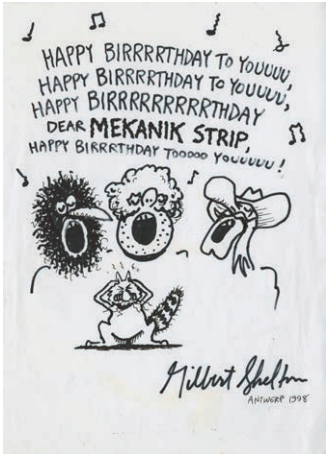 HAPPY BIRRRRTHDAY TO YOUUUU,
HAPPY BIRRRRTHDAY TO YOUUUU,
HAPPY BIRRRRRRRRRTHDAY
DEAR MEKANIK STRIP,
HAPPY BIRRRTHDAY TOOOOO YOUUUUU!
Gilbert Shelton
ANTWERP 1998